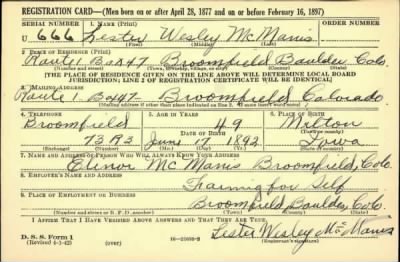 REGISTRATION CARD—(Men born on or after April 28, 1877 and on or before February 16, 1897)
SERIAL NUMBER 1. NAME (Print) ORDER NUMBER
U 666 Lester Wesley McManis
(First) (Middle) (Last)
2. PLACE OF RESIDENCE (Print)
Route 1 Box 47 Broomfield Boulder Colo.
(Number and street) (Town, township, village, or city) (County) (State)
[THE PLACE OF RESIDENCE GIVEN ON THE LINE ABOVE WILL DETERMINE LOCAL BOARD
JURISDICTION; LINE 2 OF REGISTRATION CERTIFICATE WILL BE IDENTICAL]
3. MAILING ADDRESS
Route 1 Box 47 Broomfield Colorado
[Mailing address if other than place indicated on line 2. If same insert word same]
4. TELEPHONE 5. AGE IN YEARS 6. PLACE OF BIRTH
Broomfield 49 Milton
DATE OF BIRTH (Town or county)
73R3 June 17 1892 Iowa
(Exchange) (Number) (Mo.) (Day) (Yr.) (State or country)
7. NAME AND ADDRESS OF PERSON WHO WILL ALWAYS KNOW YOUR ADDRESS
Elinor McManis Broomfield, Colo.
8. EMPLOYER'S NAME AND ADDRESS
Farming for Self
9. PLACE OF EMPLOYMENT OR BUSINESS
Broomfield, Boulder, Colo.
(Number and street or R. F. D. number) (Town) (County) (State)
I AFFIRM THAT I HAVE VERIFIED ABOVE ANSWERS AND THAT THEY ARE TRUE.
D. S. S. Form 1
(Revised 4-1-42) (over) Lester Wesley McManis
(Registrant's signature)